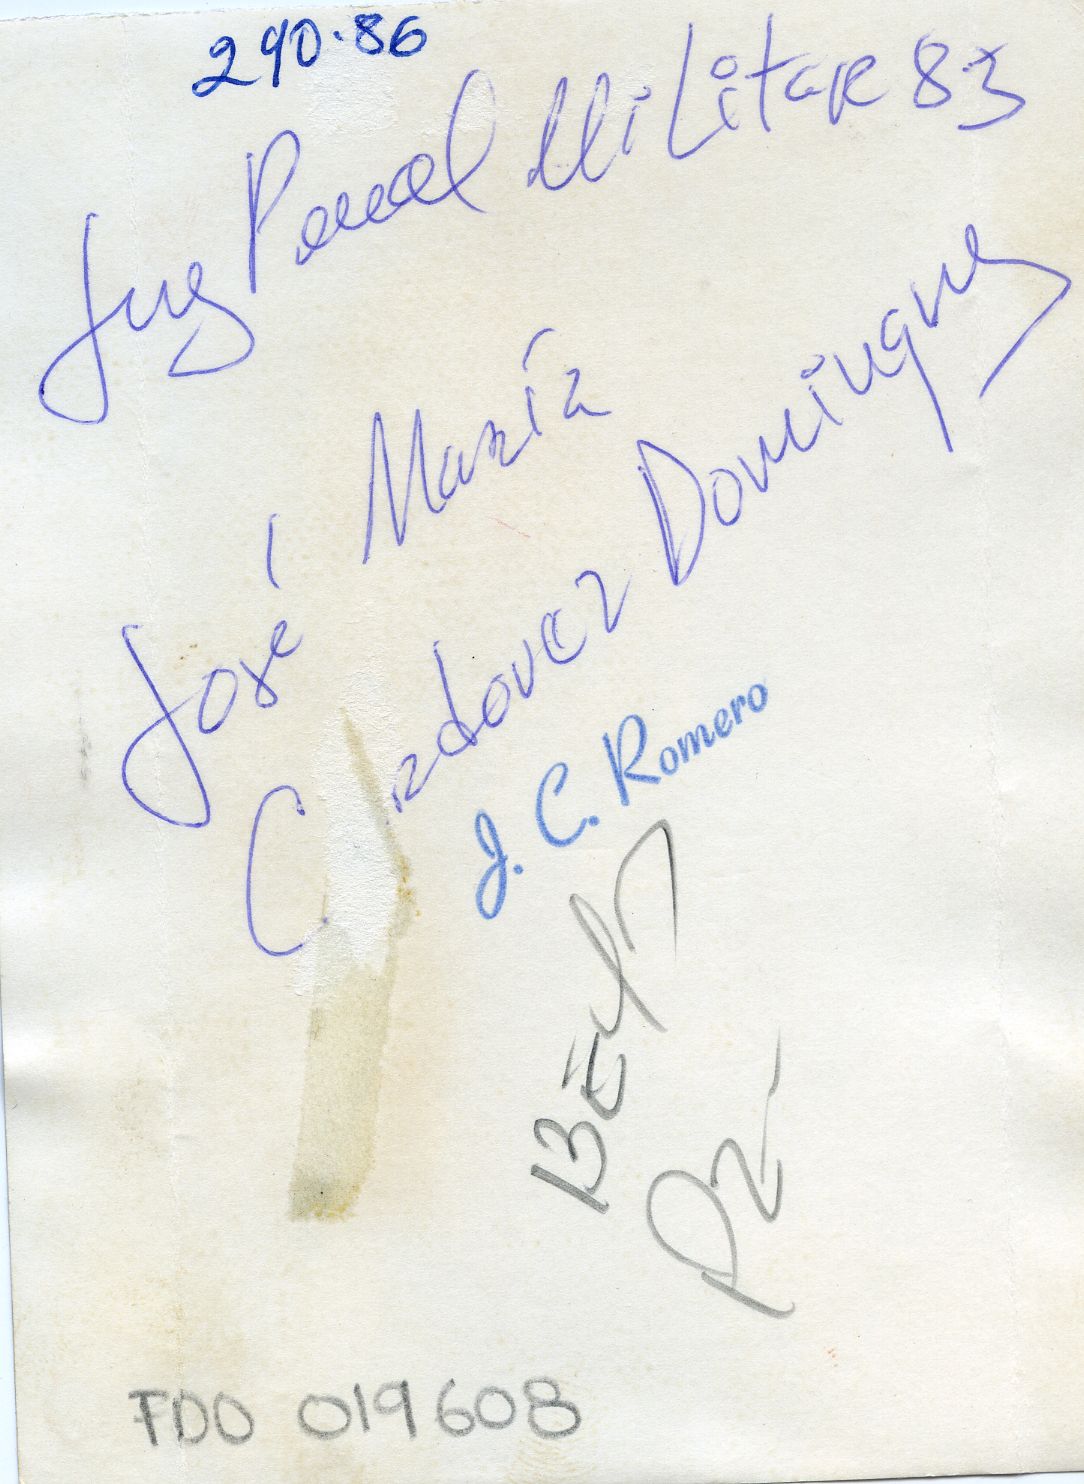 290.86
Juz Penal Militar 83
José María
C rdovez Dominguez
J. C. Romero
FDO 019608